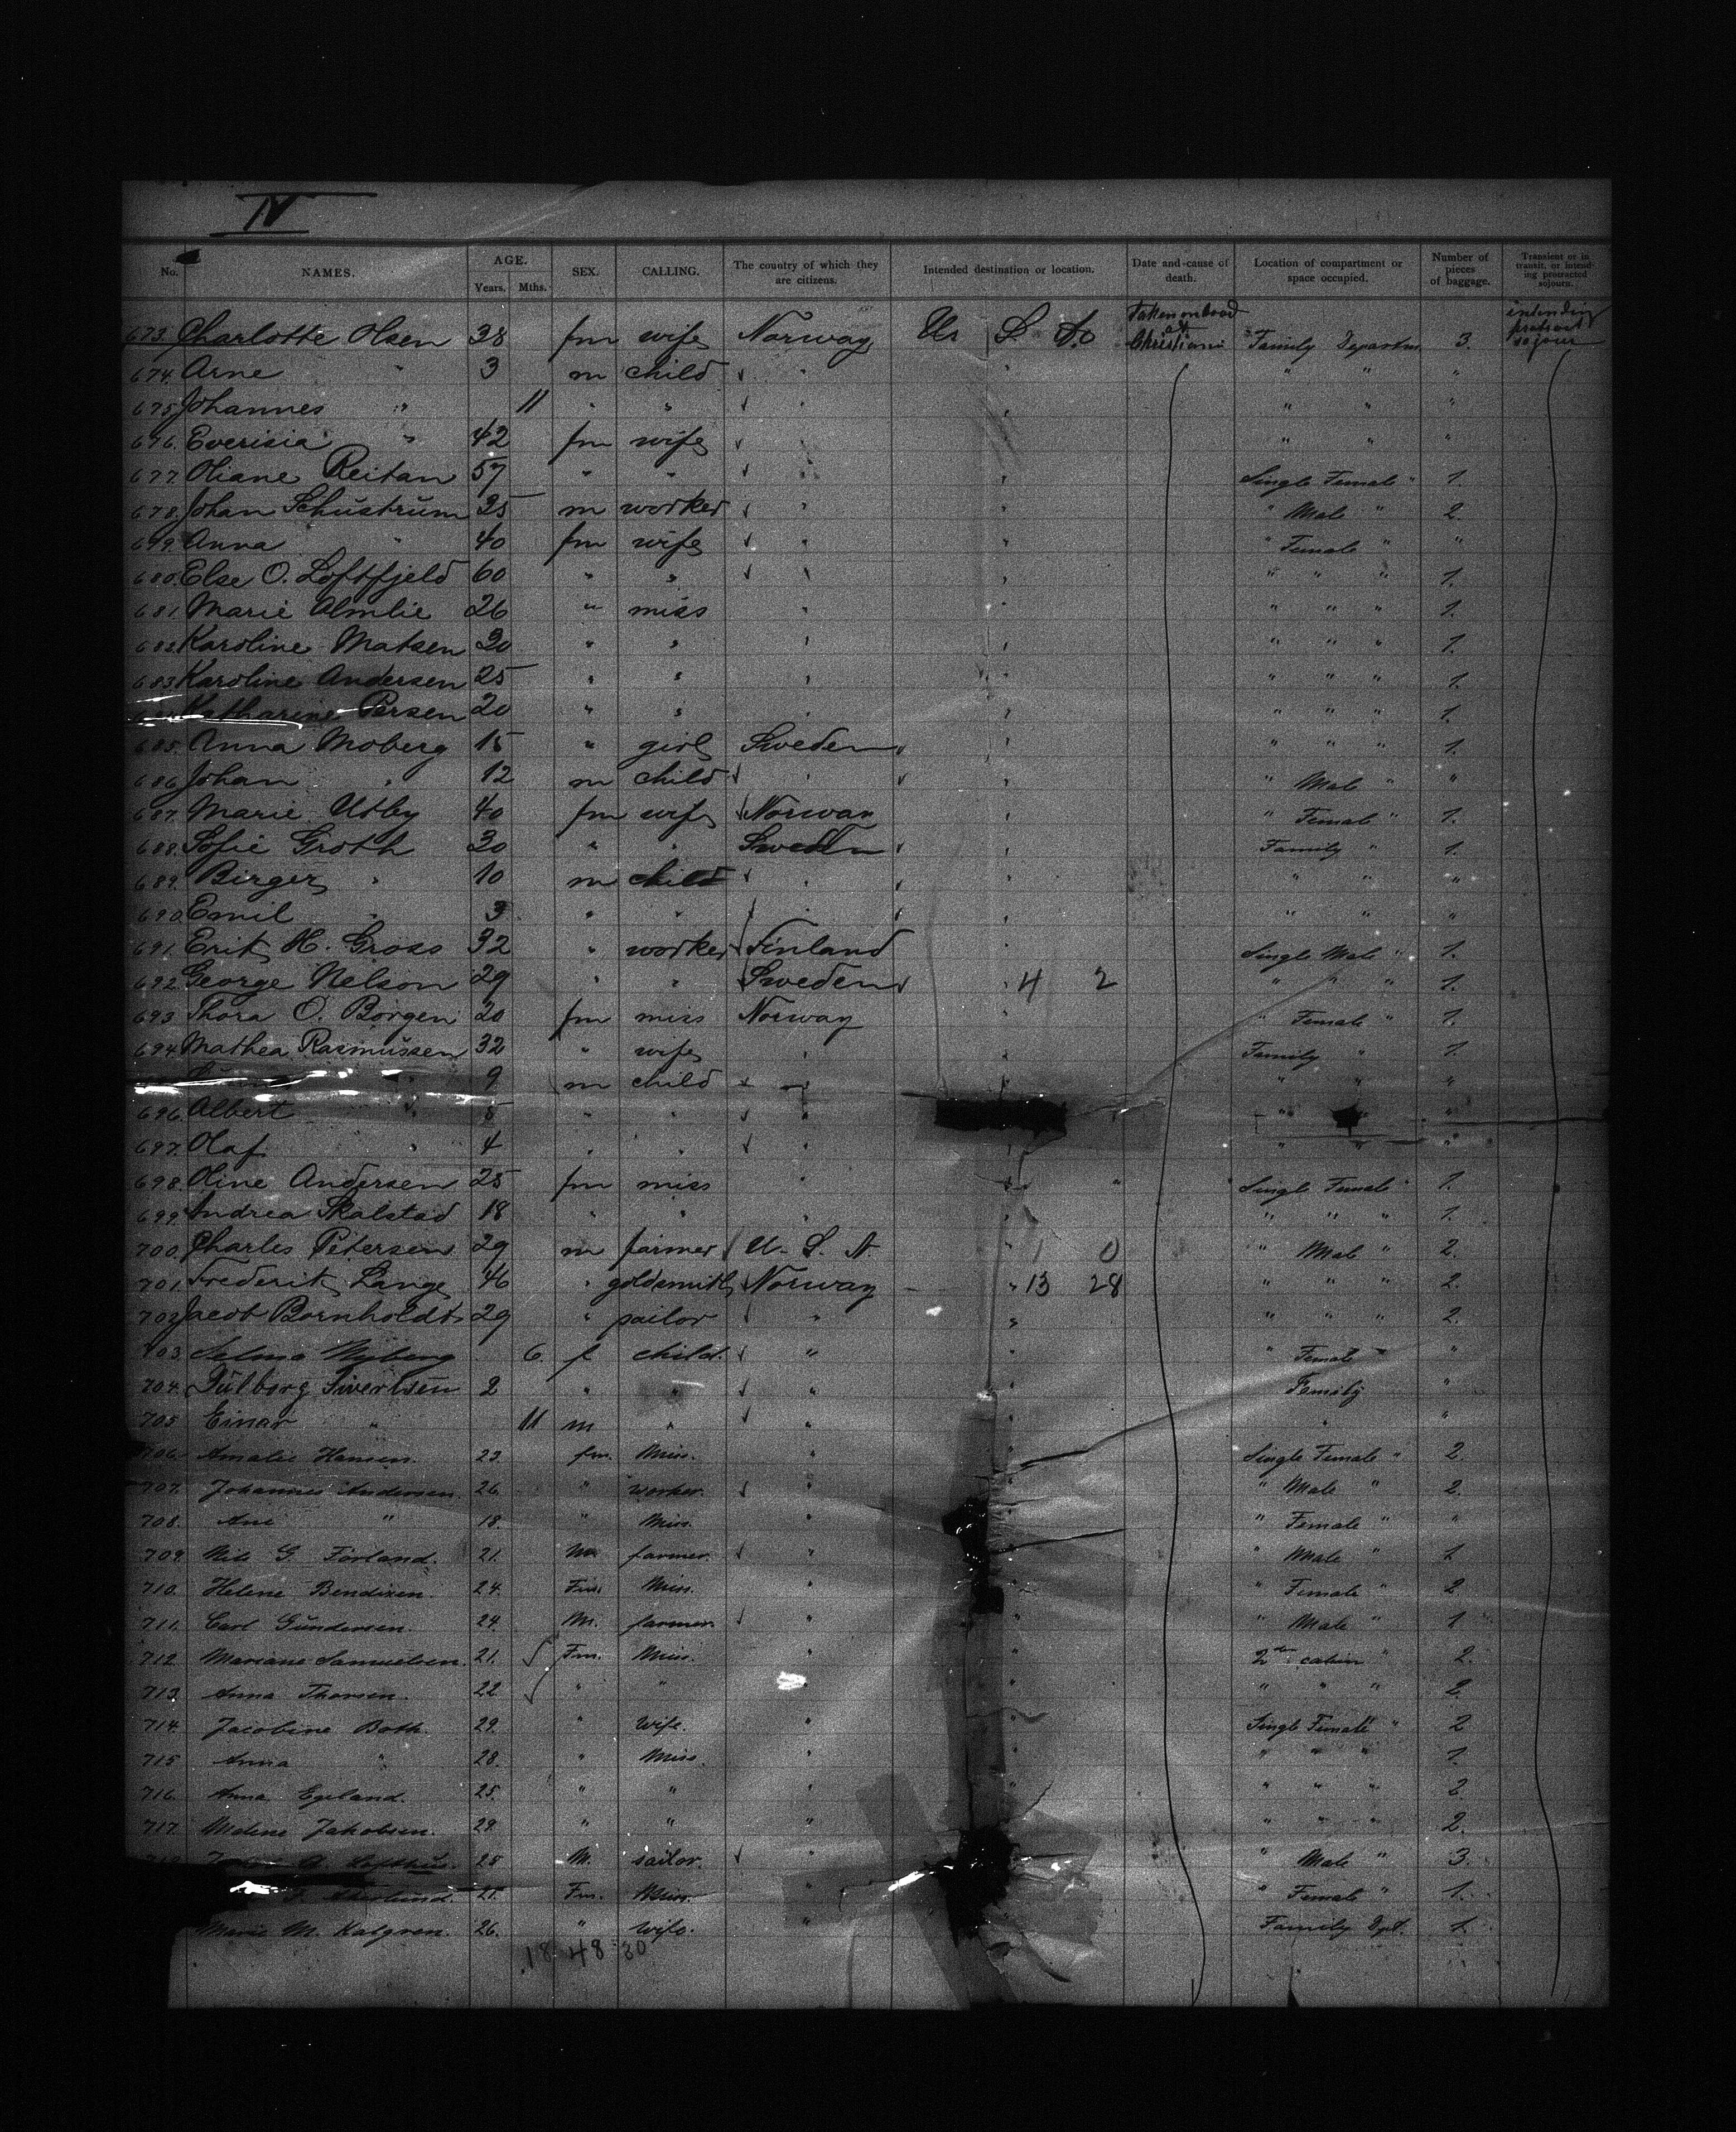 IV
No. NAMES. AGE. Years. Mths. SEX. CALLING. The country of which they are citizens. Intended destination or location. Date and cause of death. Location of compartment or space occupied. Number of pieces of baggage. Transient or in transit, or intending protracted sojourn.
673. Charlotte Olsen 38 fm wife Norway U. S. A. Taken on board at Christiania Family Departm 3. intending protract sojour
674. Arne " 3 m child " " " " "
675. Johannes " 11 " " " " " " "
676. Everisia " 42 fm wife " " "
677. Oliane Reitan 57 " " " " Single Female " 1.
678. Johan Schüstrüm 35 m worker " " " Male " 2.
679. Anna " 40 fm wife " " " Female " "
680. Else O. Loftfjeld 60 " " " " " " " 1.
681. Marie Almlie 26 " miss " " " " " 1.
682. Karoline Matsen 20 " " " " " " " 1.
683. Karoline Andersen 25 " " " " " " " 1.
Katharine Persen 20 " " " " " " " 1.
685. Anna Moberg 15 " girl Sweden " " " " 1.
686. Johan " 12 m child " " " Male " "
687. Marie Utby 40 fm wife Norway " " Female " 1.
688. Sofie Groth 30 " " Sweden " Family " 1.
689. Birger " 10 m child " " " " "
690. Emil " 3 " " " " " " "
691. Erik H. Gross 32 " worker Finland " Single Male " 1.
692. George Nelson 29 " " Sweden " 4 2 " " " 1.
693. Thora O. Borgen 20 fm miss Norway " " Female " 1.
694. Mathea Rasmüssen 32 " wife " " Family " 1.
" 9 m child " " " " "
696. Albert " 5 " " " " " "
697. Olaf " 4 " " " " " " "
698. Oline Andersen 25 fm miss " " " Single Female " 1.
699. Andrea Skalstad 18 " " " " " " " 1.
700. Charles Petersen 29 m farmer U. S. A. " 1 0 " Male " 2.
701. Frederik Lange 46 " goldsmith Norway " 13 28 " " " 2.
702. Jacob Bornholdt 29 " sailor " " " " " 2.
703 Selma Nyberg 6. f child. " " " Female " "
704. Sivertsen 2 " " " " Family "
705 Einar " 11 m " " " " "
706. Amalie Hansen. 23. fm. Miss. " " Single Female " 2.
707. Johannes Andersen. 26. " worker. " " " Male " 2.
708. Ane " 18. " Miss. " " " Female " "
709. Nils G. Förland. 21. M. farmer. " " Male " 1
710. Helene Bendixen. 24. Fm. Miss. " " Female " 2
711. Carl Gündersen. 24. M. farmer. " " " Male " 1
712. Mariane Samuelsen. 21. Fm. Miss. " " 2 cabin " 2.
713. Anna Thorsen. 22 " " " " " " " 2.
714. Jacobine Both. 29. " Wife. " " Single Female " 2
715 Anna " 28. " Miss. " " " " " 1.
716. Anna Egeland. 25. " " " " " " " 2
717. Malene Jakobsen. 29. " " " " " " 2.
Lofthüs. 25 M. sailor. " " Male " 3.
21. Fm. Miss. " " Female " 1.
Marie M. Kalgren. 26. " Wife. " Family Dpt. 1.
18 48 30